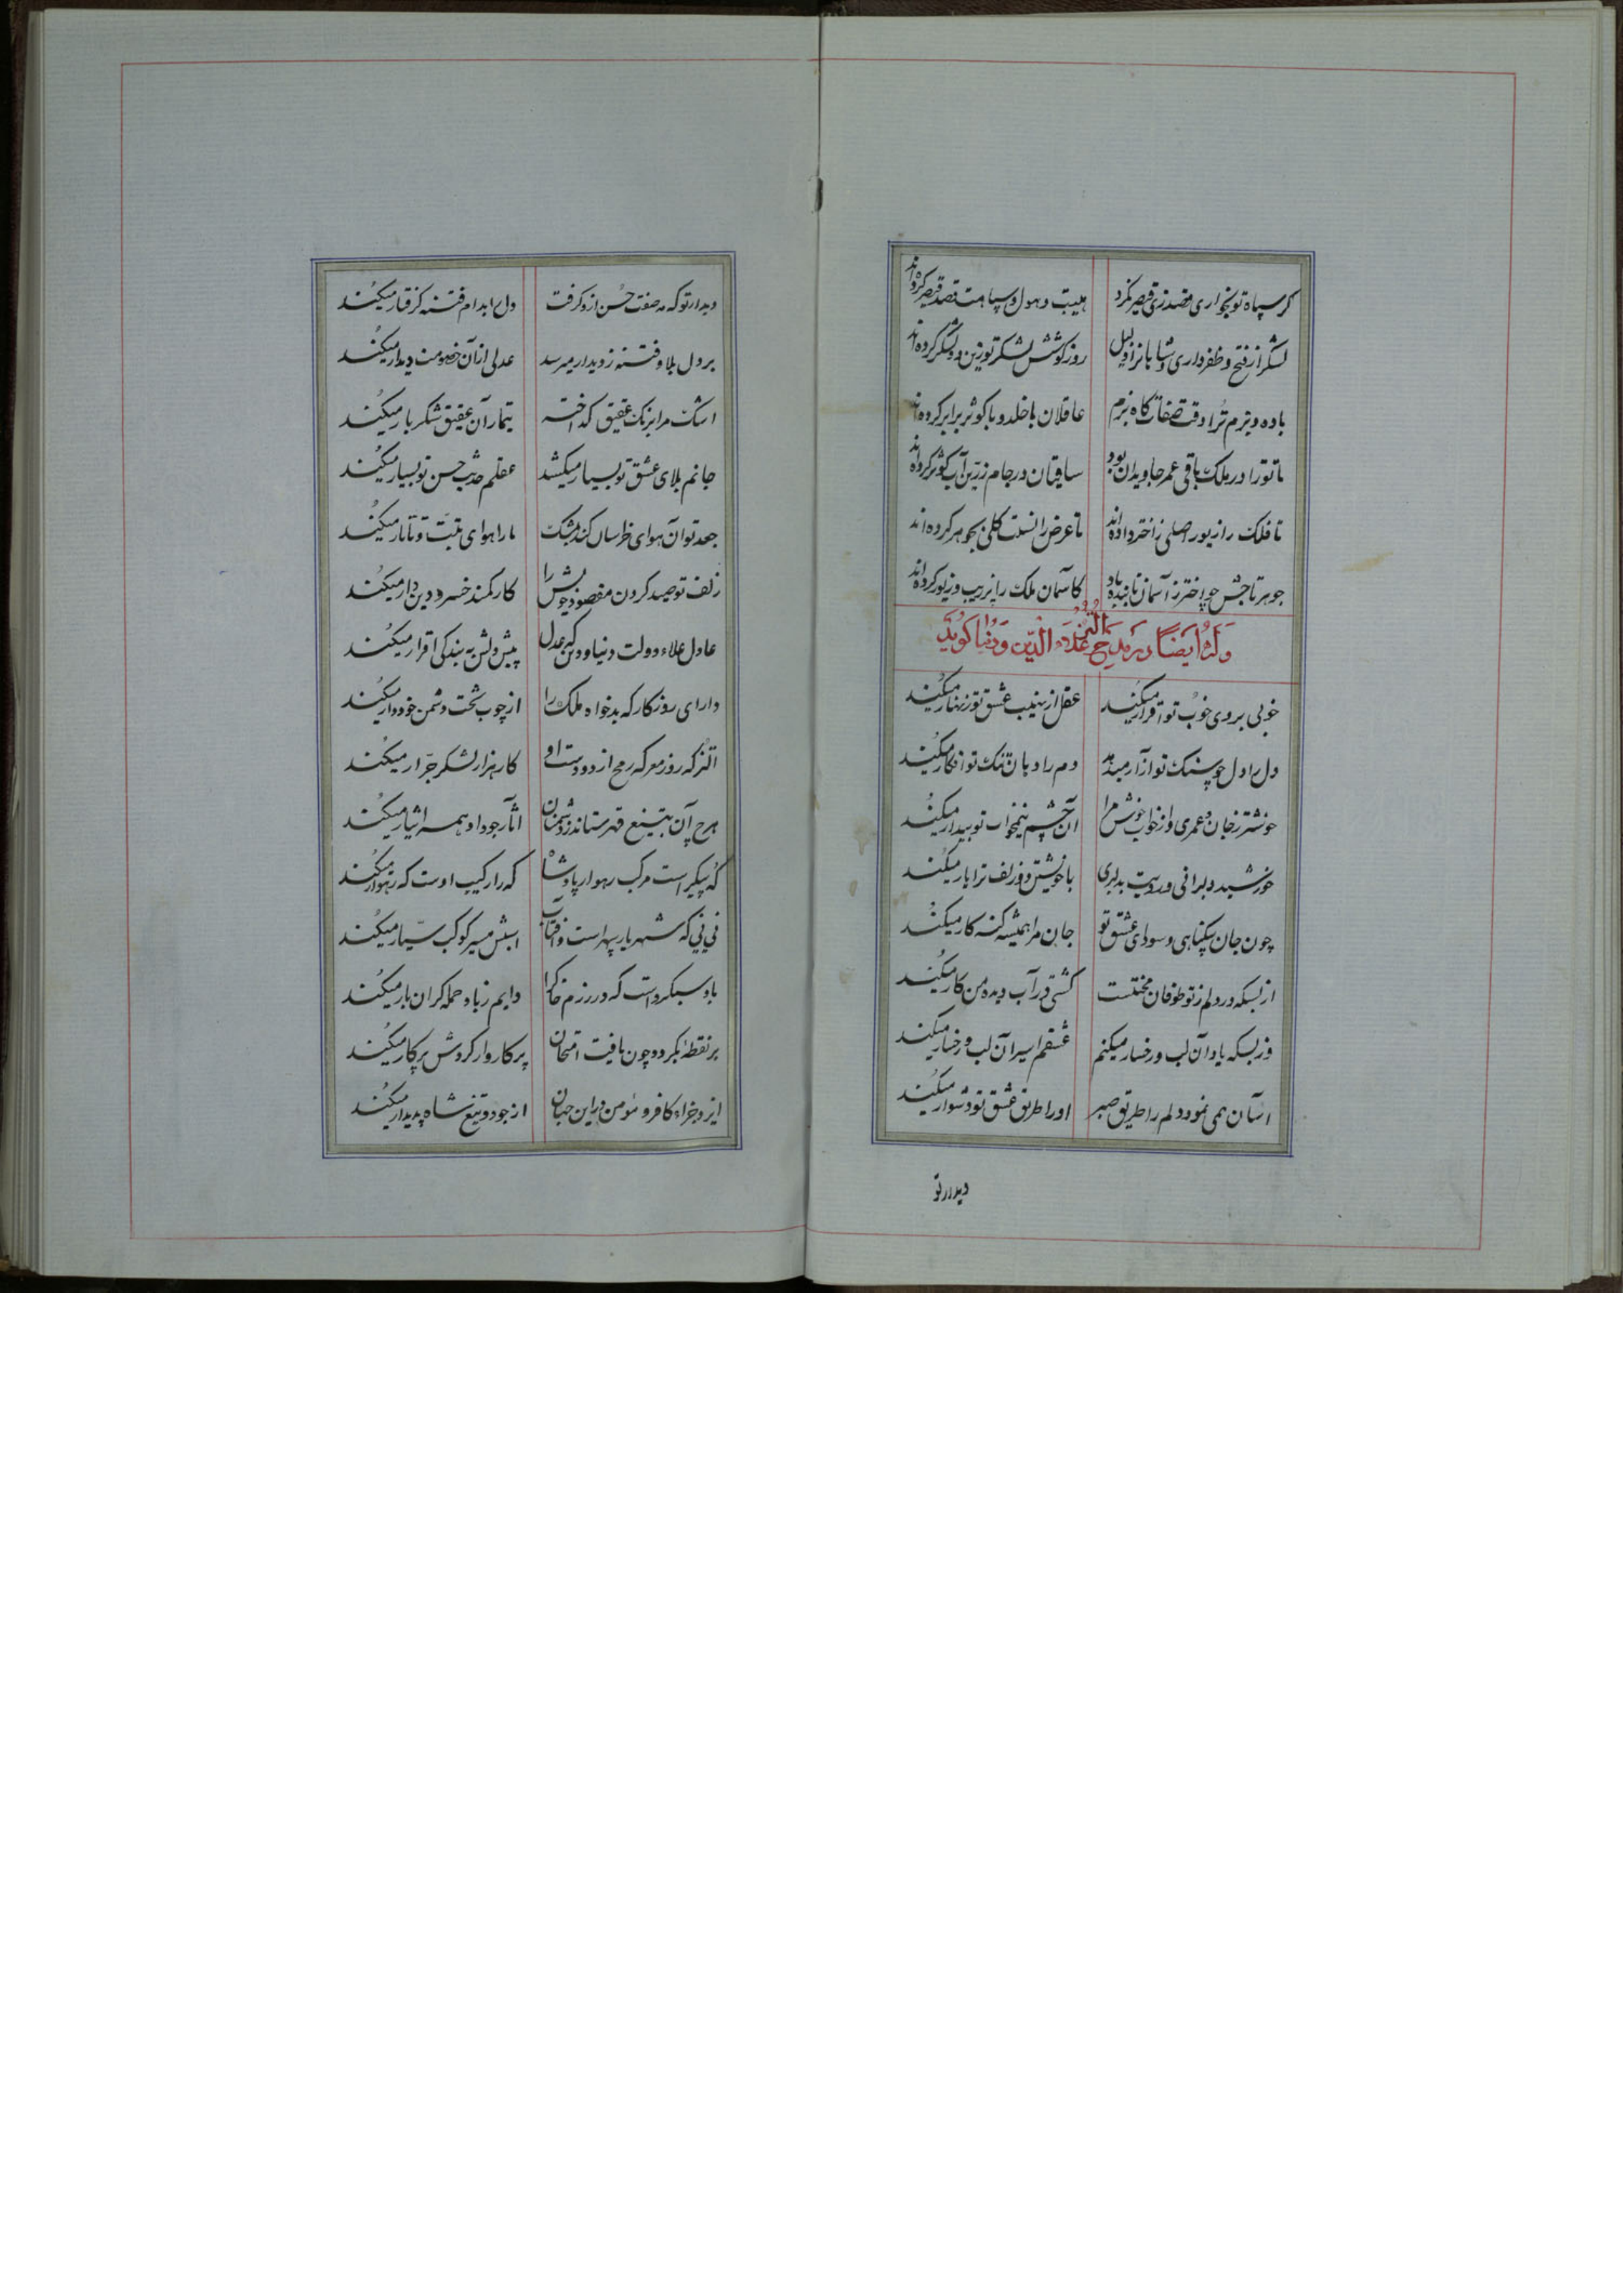 گر سپاه تو بخواری قصد زی قیصر نکرد هیبت و هول و سپاهت قصد قیصر کرده‌اند
لشکر از فتح و ظفر داری و شاهانرا دلیل روز کوشش لشکر تو زین دو لشکر کرده‌اند
باده و بزم ترا وقت صفا گاه بزم عاقلان با خلد و با کوثر برابر کرده‌اند
تا تو را در ملک باقی عمر جاویدان بود ساقیان در جام زرین آب کوثر کرده‌اند
تا فلک را زیور اصلی ز اختر داده‌اند تا عرض را نسبت کلی بجوهر کرده‌اند
جوهر تاجش چو اختر ز آسمان تابنده باد کاسمان ملک را پر زیب و زیور کرده‌اند
وله ایضا در مدیح علاء الدین و دنیا گوید
خوبی بروی خوب تو اقرار میکند عقل از نهیب عشق تو زنهار میکند
دل را دل چو سنگ تو آزار میدهد دم را دهان تنگ تو افکار میکند
خوشتر ز جان و عمری و از خواب خوش مرا آن چشم نیمخواب تو بیدار میکند
خورشید دلبرانی و رویت بدلبری با خویشتن دو زلف ترا یار میکند
چون جان بیگناهی و سودای عشق تو جان مرا همیشه گنه کار میکند
از بسکه در دلم ز تو طوفان محنتست کشتی در آب دیده من کار میکند
وز بسکه یاد آن لب و رخسار میکنم عشقم اسیر آن لب و رخسار میکند
آسان همی نمود دلم را طریق صبر او را طریق عشق تو دشوار میکند
دیدار تو
دیدار تو که مه صفت حسن ازو گرفت دل را بدام فتنه گرفتار میکند
بر دل بلا و فتنه ز دیدار میرسد عدلی از آن خصومت دیدار میکند
اشک مرا برنگ عقیق گداخته تیمار آن عقیق شکربار میکند
جانم بلای عشق تو بسیار میکشد عقلم حدیث حسن تو بسیار میکند
جعد تو آن هوای خراسان کند بمشک ما را هوای تبت و تاتار میکند
زلف تو صید کردن مقصود خویش را کار کمند خسرو دین دار میکند
عادل علاء دولت دنیا و دین که عدل پیش دلش به بندگی اقرار میکند
دارای روزگار که بدخواه ملک را از چوب تخت دشمن خود دار میکند
اتسز که روز معرکه رمح از دو دست او کار هزار لشکر جرار میکند
هرچ آن بتیغ قهر ستاند ز دشمنان آثار جود او همه ایثار میکند
که پیکر است مرکب رهوار پادشاه که را رکیب اوست که رهوار میکند
نی نی که شهریار سپهر است و آفتاب اسبش مسیر کوکب سیار میکند
باد سبکرو است که در رزم خاک را دایم ز باد حمله گران بار میکند
بر نقطهٔ بگردد چون یافت امتحان پرکاروار گردش پرکار میکند
ایزد جزاء کافر و مؤمن در این جهان از جود و تیغ شاه پدیدار میکند